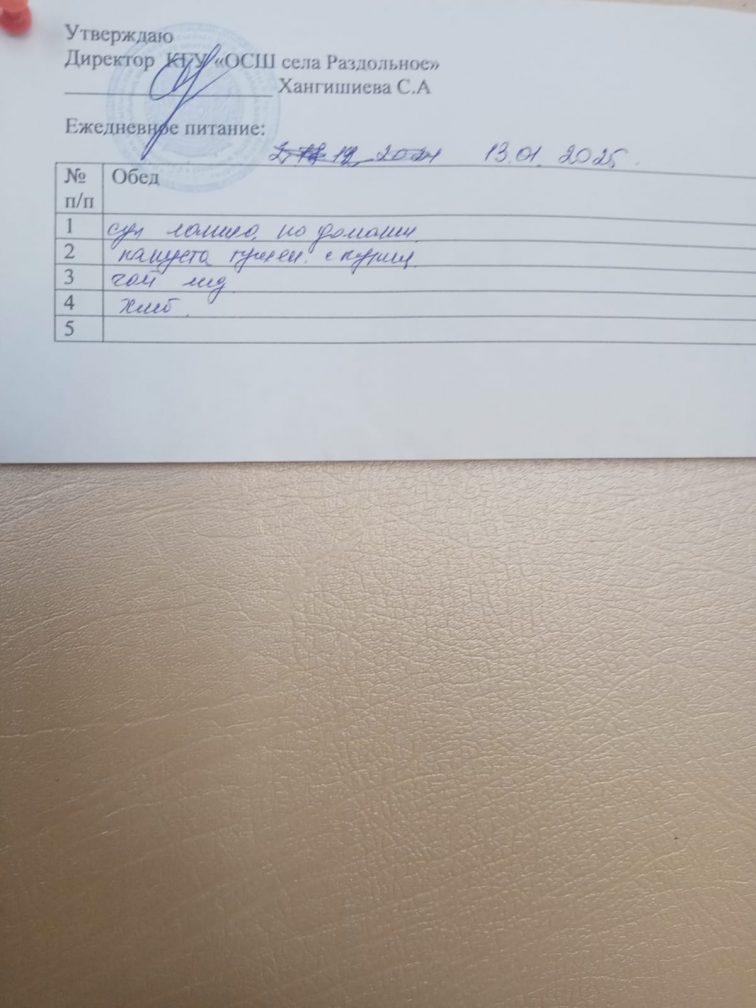 Утверждаю
Директор КГУ «ОСШ села Раздольное»
Хангишиева С.А
Ежедневное питание:
13.01. 2025.
№ п/п Обед
1 суп лапша по домашн
2 капуста тушен. с куриц
3 чай
4 хлеб
5